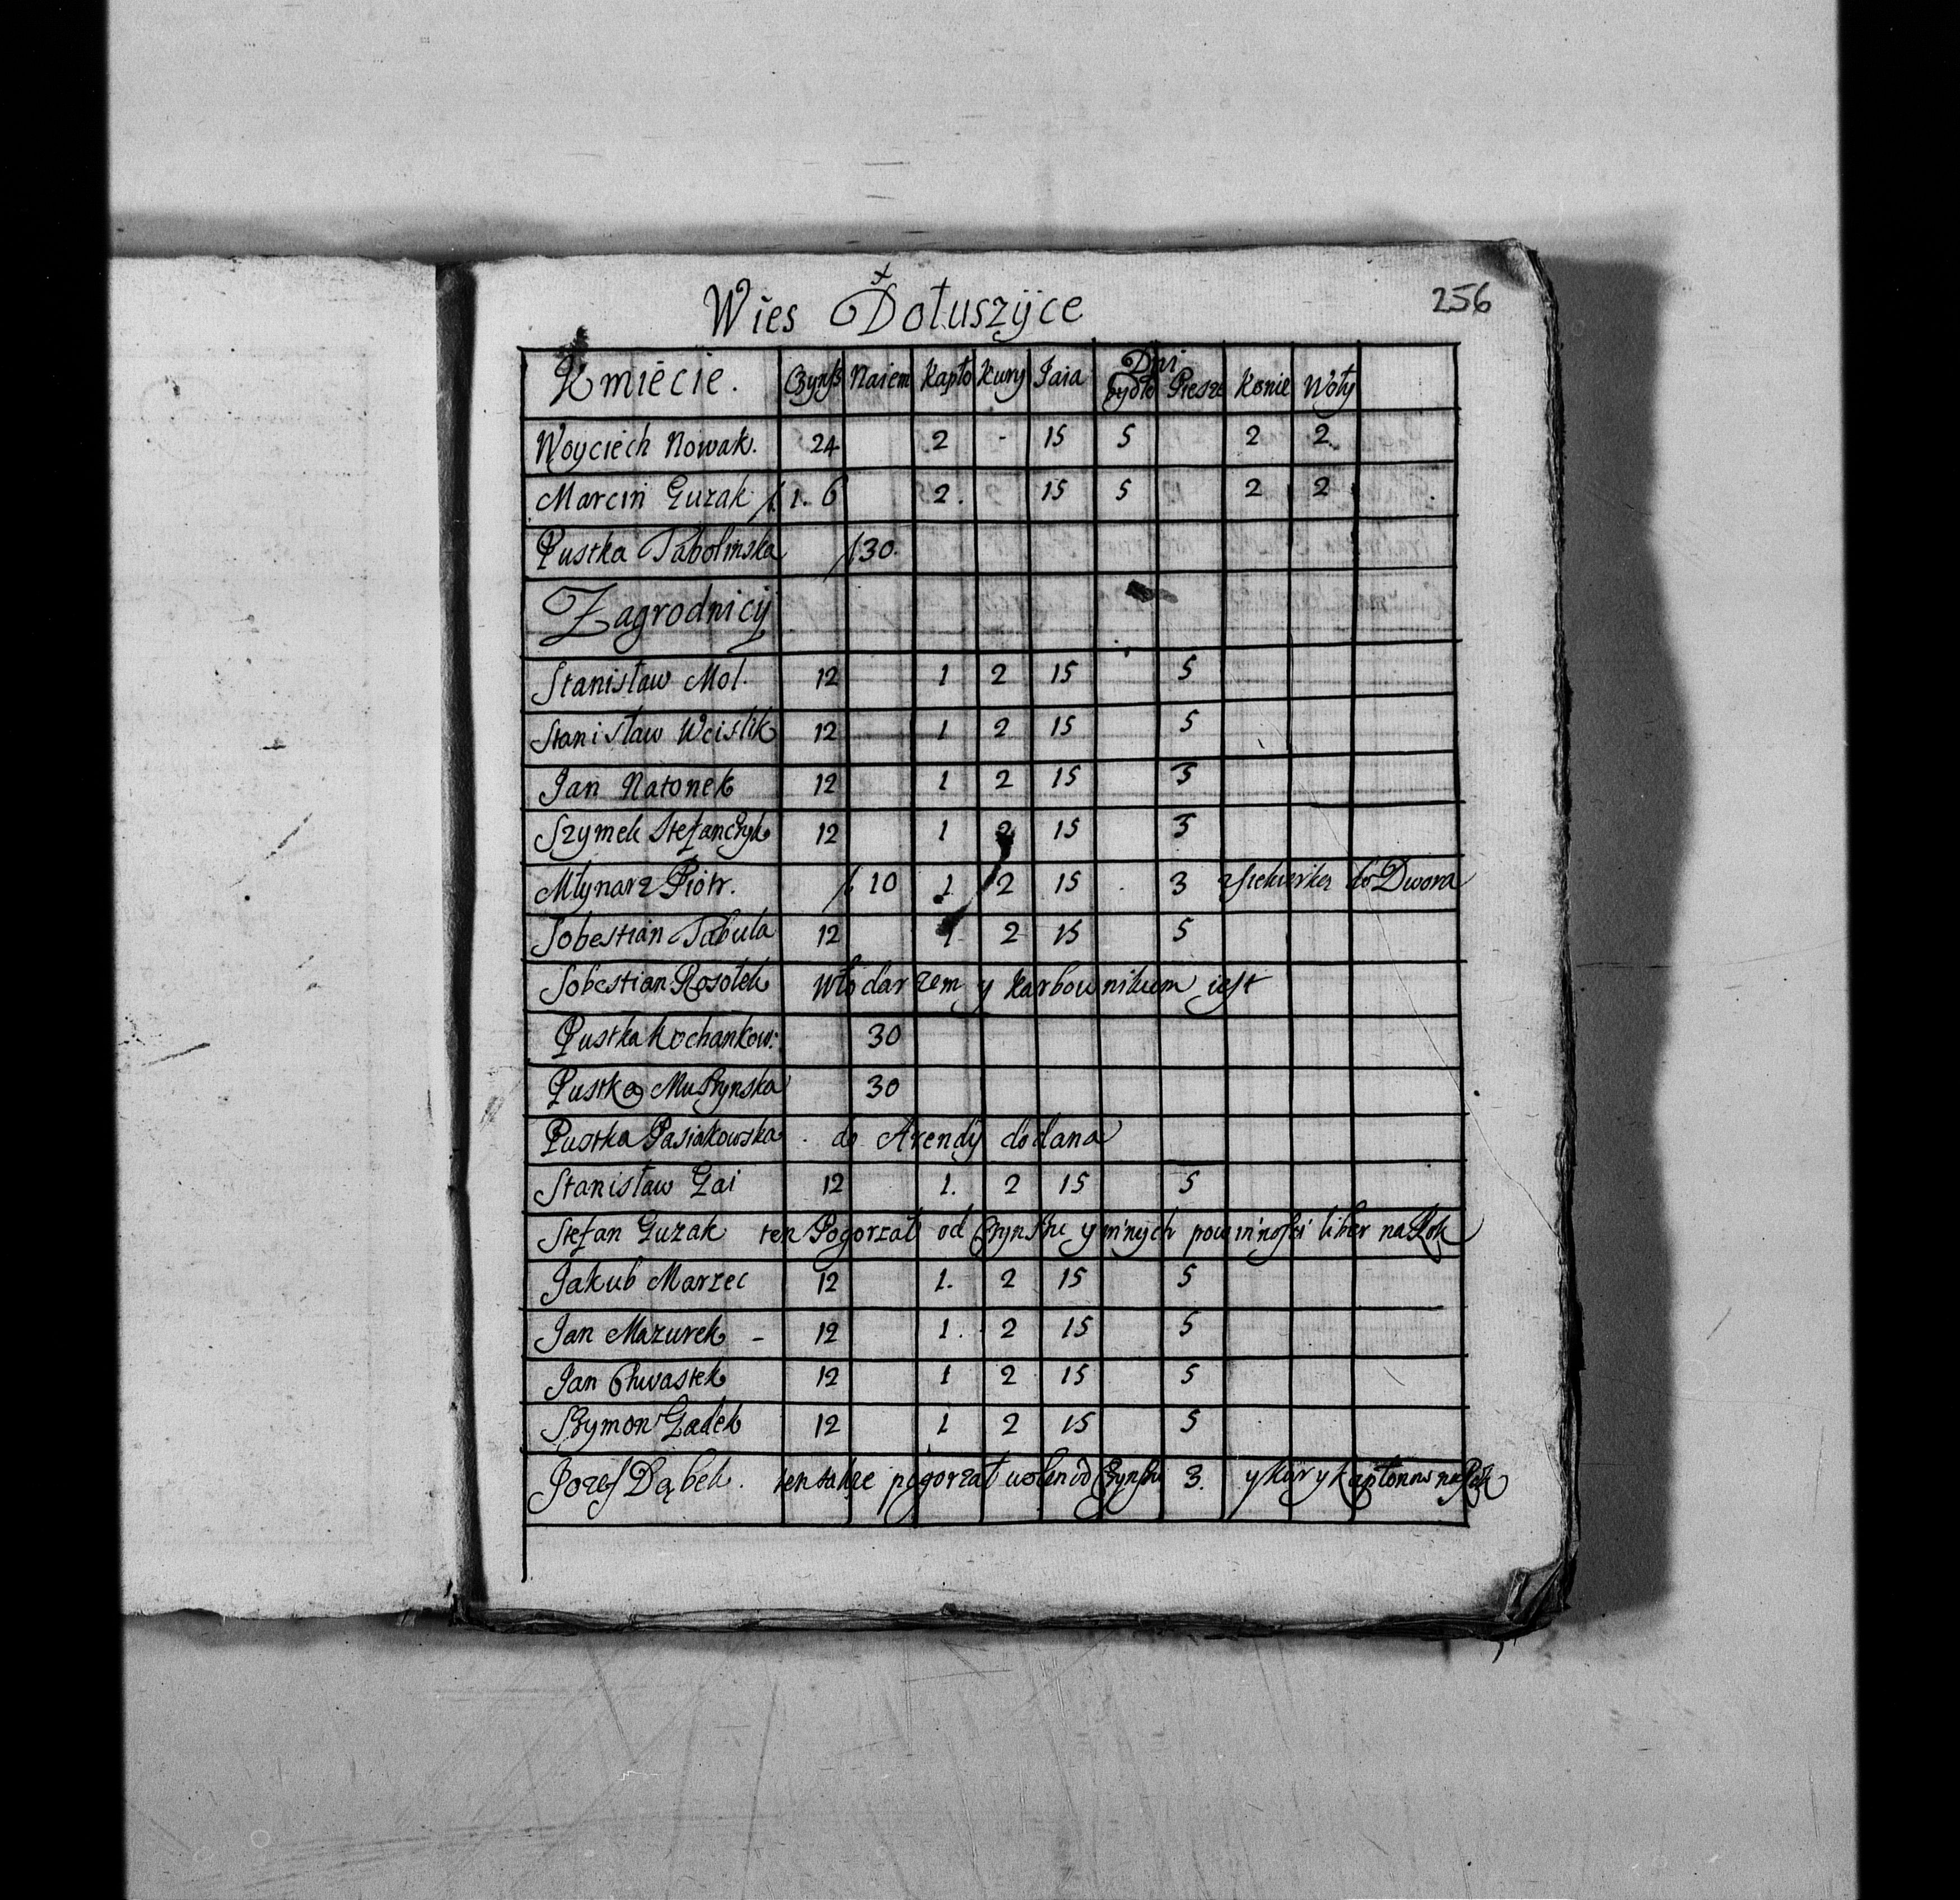 256
Wies Dołuszyce
Kmiecie. Czynß Naiem Kapło Kury Jaia Dni bydło Piesze Konie Woły
Woyciech Nowak. 24 2 - 15 5 2 2
Marcin Guzak f. 1. 6 2. 15 5 2 2
Pustka Tabolinska f 30.
Zagrodnicy
Stanisław Mol. 12 1 2 15 5
Stanisław Wcislik 12 1 2 15 5
Jan Natonek 12 1 2 15 3
Szymek Stefanczyk 12 1 2 15 3
Młynarz Piotr. f. 10 1 2 15 3 z siekierka do Dwora
Sobestian Tabula 12 1 2 15 5
Sobestian Rosołek Włodarzem y karbownikiem iest
Pustka Kochankow: 30
Pustka Mußynska 30
Pustka Pasiakowska do Arendy dodana
Stanisław Gai 12 1. 2 15 5
Stefan Guzak ten Pogorzał od Czynßu y innych powinnosci liber na Rok
Jakub Marzec 12 1. 2 15 5
Jan Mazurek - 12 1. 2 15 5
Jan Chwastek 12 1 2 15 5
Szymon Gadek 12 1 2 15 5
Jozef Dąbek. ten takze pogorzał wolen od Czynßu 3. y kur y kapłonow na Rok